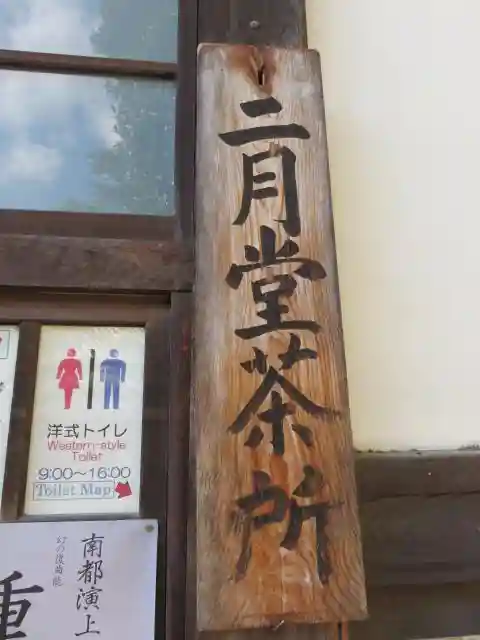 二月堂茶所
洋式トイレ
Western-style
Toilet
9:00~16:00
Toilet Map
南都演上
幻の復曲能